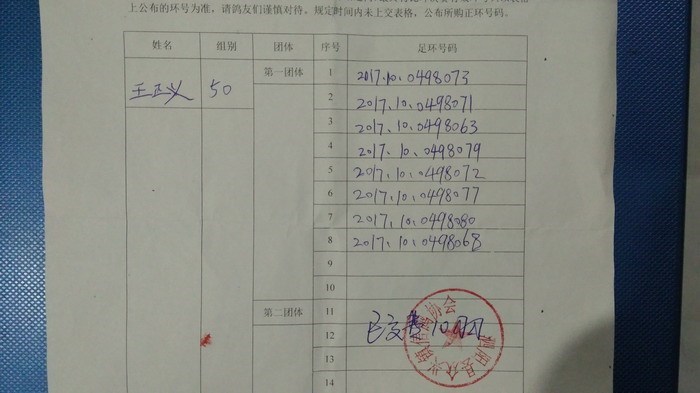 上公布的环号为准，请鸽友们谨慎对待。规定时间内未上交表格，公布所购正环号码。
姓名 组别 团体 序号 足环号码
王正义 50 第一团体 1 2017.10.0498073
2 2017.10.0498071
3 2017.10.0498063
4 2017.10.0498079
5 2017.10.0498072
6 2017.10.0498077
7 2017.10.0498080
8 2017.10.0498068
9
10
第二团体 11
12 已交费100元
13
14
泗阳县众兴镇信鸽协会